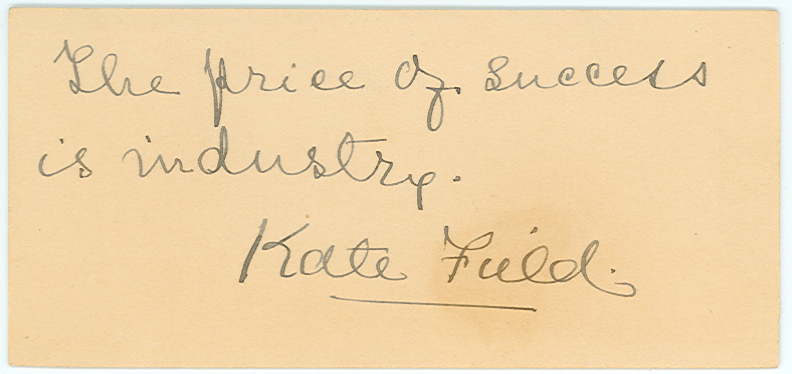 The price of success
is industry.
Kate Field.